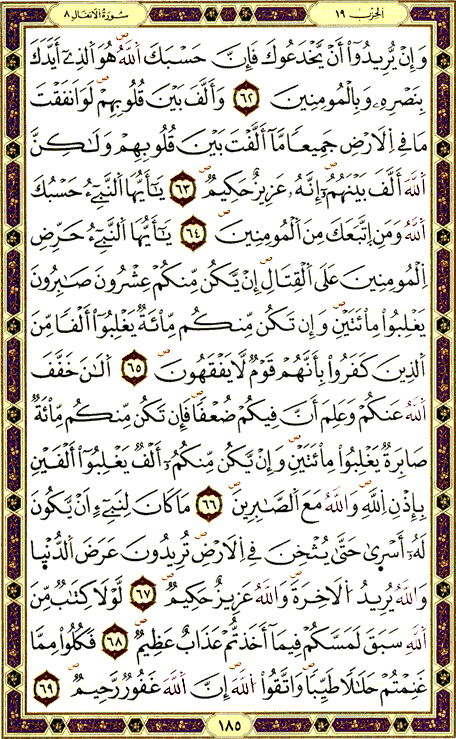 الحزب ١٩
سورة الأنفال ٨
وَإِنْ يُّرِيدُوٓاْ أَنْ يَّخْدَعُوكَ فَإِنَّ حَسْبَكَ اَللَّهُ هُوَ اَلذِےٓ أَيَّدَكَ
بِنَصْرِهِۦ وَبِالْمُومِنِينَ ٦٢ وَأَلَّفَ بَيْنَ قُلُوبِهِمْ لَوَ اَنفَقْتَ
مَا فِے اِلَارْضِ جَمِيعاٗ مَّآ أَلَّفْتَ بَيْنَ قُلُوبِهِمْ وَلَٰكِنَّ
اَللَّهَ أَلَّفَ بَيْنَهُمُۥٓ إِنَّهُۥ عَزِيزٌ حَكِيمٌ ٦٣ يَٰٓأَيُّهَا اَلنَّبِےٓءُ حَسْبُكَ
اَللَّهُ وَمَنِ اِتَّبَعَكَ مِنَ اَلْمُومِنِينَ ٦٤ يَٰٓأَيُّهَا اَلنَّبِےٓءُ حَرِّضِ
اِلْمُومِنِينَ عَلَى اَلْقِتَالِ إِنْ يَّكُن مِّنكُمْ عِشْرُونَ صَٰبِرُونَ
يَغْلِبُواْ مِاْئَتَيْنِ وَإِن تَكُن مِّنكُم مِّاْئَةٌ يَغْلِبُوٓاْ أَلْفاٗ مِّنَ
اَلذِينَ كَفَرُواْ بِأَنَّهُمْ قَوْمٌ لَّا يَفْقَهُونَ ٦٥ اَلَٰنَ خَفَّفَ
اَللَّهُ عَنكُمْ وَعَلِمَ أَنَّ فِيكُمْ ضُعْفاٗ فَإِن تَكُن مِّنكُم مِّاْئَةٌ
صَابِرَةٌ يَغْلِبُواْ مِاْئَتَيْنِ وَإِنْ يَّكُن مِّنكُمُۥٓ أَلْفٌ يَغْلِبُوٓاْ أَلْفَيْنِ
بِإِذْنِ اِللَّهِ وَاللَّهُ مَعَ اَلصَّٰبِرِينَ ٦٦ مَا كَانَ لِنَبِےٓءٍ اَنْ يَّكُونَ
لَهُۥٓ أَسْرَىٰ حَتَّىٰ يُثْخِنَ فِے اِلَارْضِ تُرِيدُونَ عَرَضَ اَلدُّنْيا
وَاللَّهُ يُرِيدُ اُلَاخِرَةَ وَاللَّهُ عَزِيزٌ حَكِيمٌ ٦٧ لَّوْلَا كِتَٰبٌ مِّنَ
اَللَّهِ سَبَقَ لَمَسَّكُمْ فِيمَآ أَخَذتُّمْ عَذَابٌ عَظِيمٌ ٦٨ فَكُلُواْ مِمَّا
غَنِمْتُمْ حَلَٰلاٗ طَيِّباٗ وَاتَّقُواْ اُللَّهَ إِنَّ اَللَّهَ غَفُورٌ رَّحِيمٌ ٦٩
١٨٥